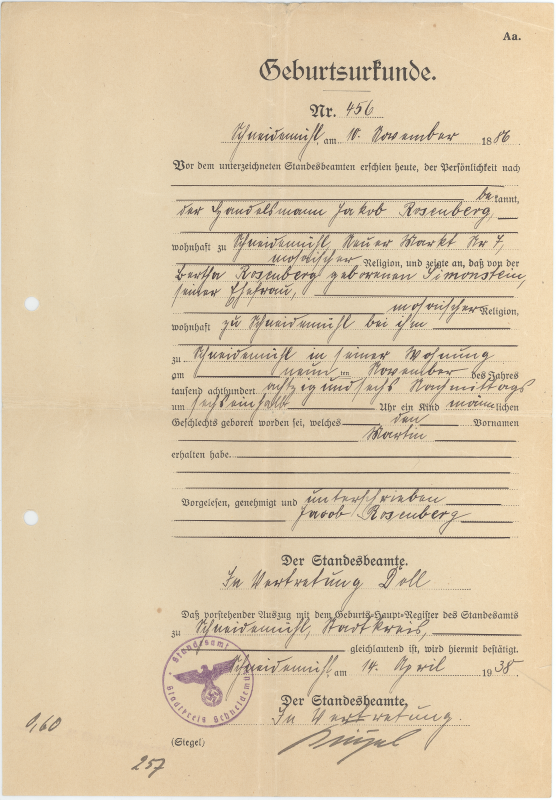 Aa.
Geburtsurkunde.
Nr. 456
Schneidemühl, am 10. November 1886
Vor dem unterzeichneten Standesbeamten erschien heute, der Persönlichkeit nach
bekannt,
der Handelsmann Jakob Rosenberg,
wohnhaft zu Schneidemühl, Neuer Markt Nr 7,
mosaischer Religion, und zeigte an, daß von der
Bertha Rosenberg geborenen Simonstein,
seiner Ehefrau,
mosaischer Religion,
wohnhaft zu Schneidemühl bei ihm
zu Schneidemühl in seiner Wohnung
am neunten November des Jahres
tausend achthundert achtzig und sechs Nachmittags
um sechseinhalb Uhr ein Kind männlichen
Geschlechts geboren worden sei, welches den Vornamen
Martin
erhalten habe.
Vorgelesen, genehmigt und unterschrieben
Jacob Rosenberg
Der Standesbeamte.
In Vertretung Doll
Daß vorstehender Auszug mit dem Geburts-Haupt-Register des Standesamts
zu Schneidemühl, Stadtkreis,
gleichlautend ist, wird hiermit bestätigt.
Schneidemühl, am 14. April 1938.
Der Standesbeamte,
In Vertretung.
(Siegel)
Standesamt
Stadtkreis Schneidemühl
0,60
257